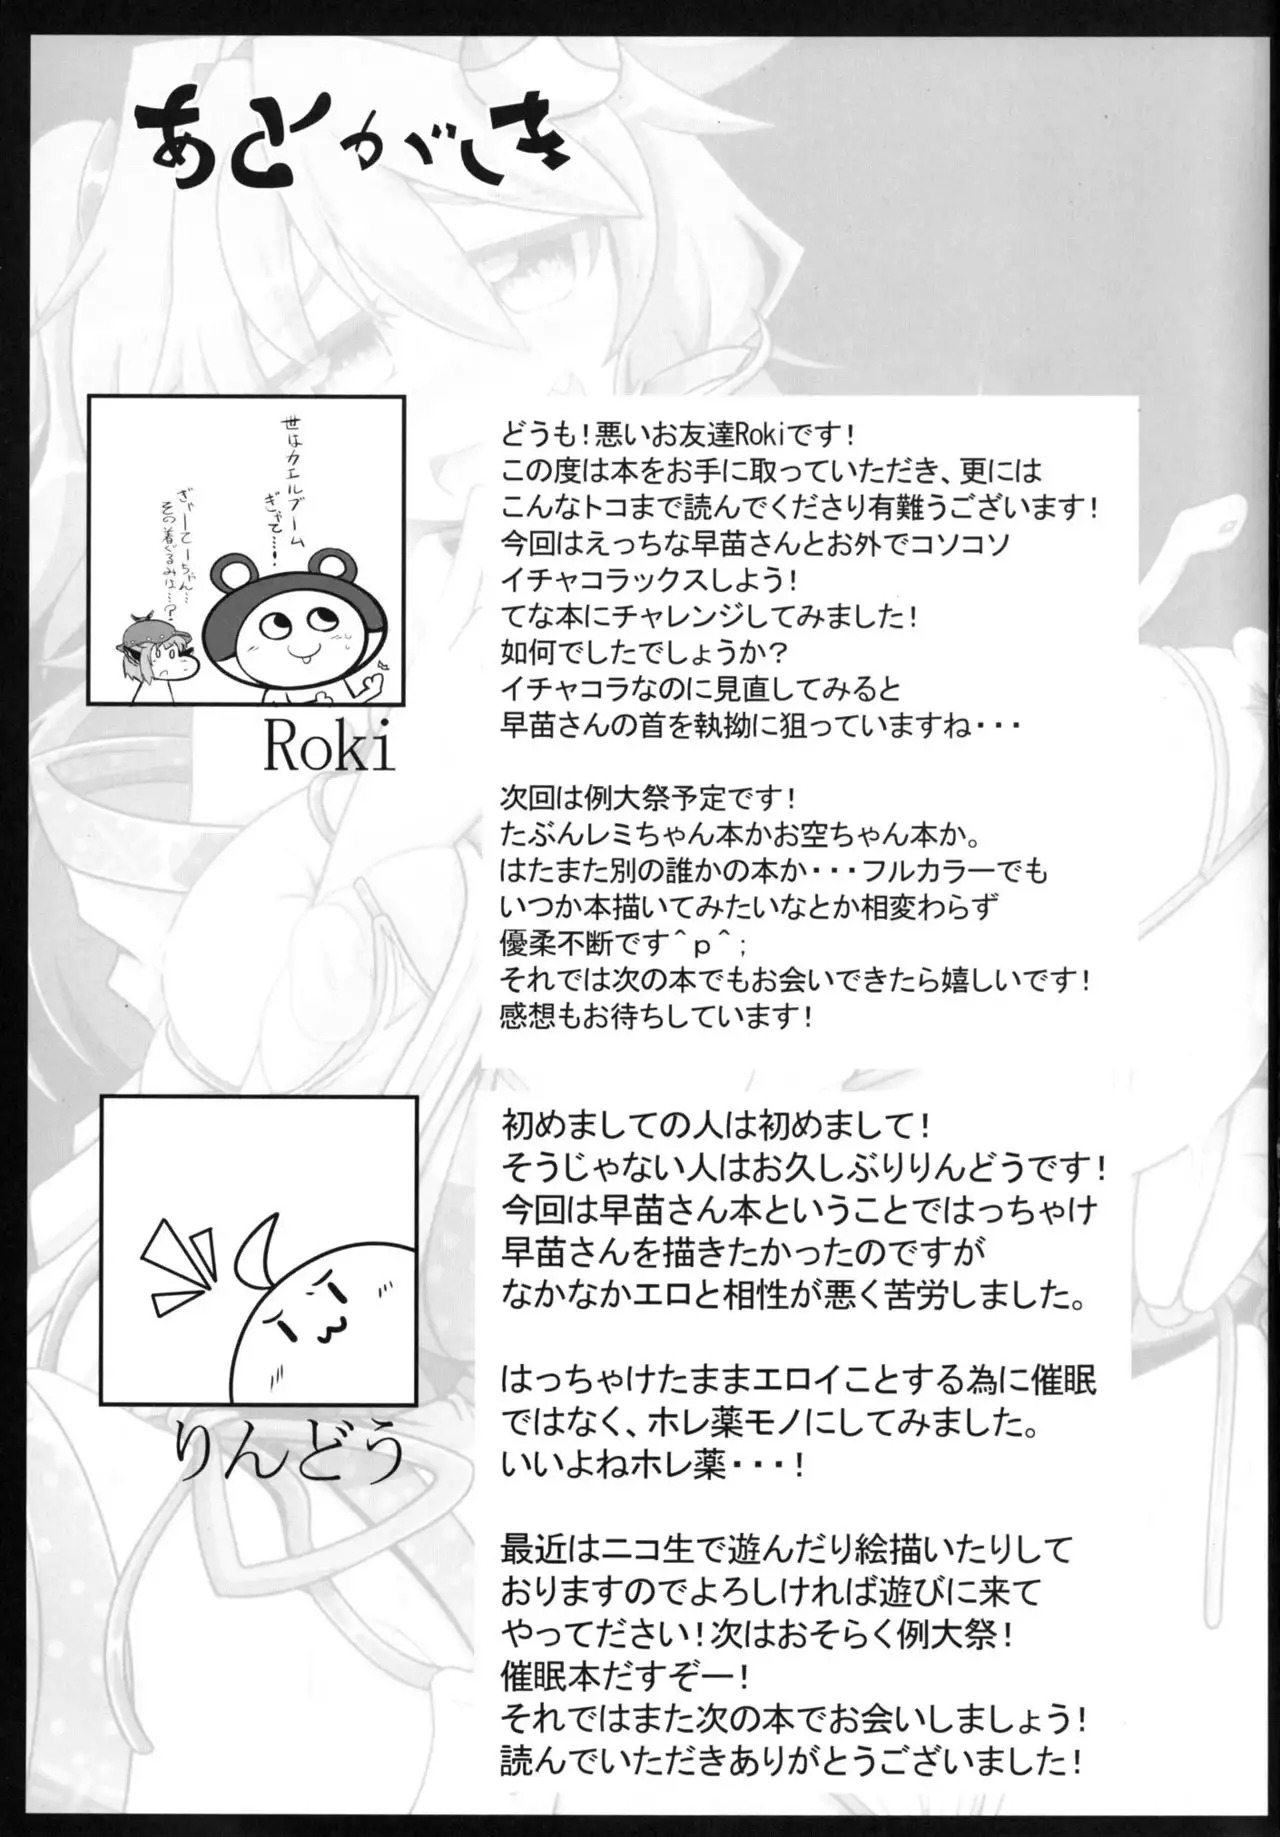 あとがき
世はカエルブーム
ぎゃて…!
ぎゃーてーちゃん…
その着ぐるみは…?
Roki
どうも!悪いお友達Rokiです!
この度は本をお手に取っていただき、更には
こんなトコまで読んでくださり有難うございます!
今回はえっちな早苗さんとお外でコソコソ
イチャコラックスしよう!
てな本にチャレンジしてみました!
如何でしたでしょうか?
イチャコラなのに見直してみると
早苗さんの首を執拗に狙っていますね・・・
次回は例大祭予定です!
たぶんレミちゃん本かお空ちゃん本か。
はたまた別の誰かの本か・・・フルカラーでも
いつか本描いてみたいなとか相変わらず
優柔不断です^p^;
それでは次の本でもお会いできたら嬉しいです!
感想もお待ちしています!
りんどう
初めましての人は初めまして!
そうじゃない人はお久しぶりりんどうです!
今回は早苗さん本ということではっちゃけ
早苗さんを描きたかったのですが
なかなかエロと相性が悪く苦労しました。
はっちゃけたままエロイことする為に催眠
ではなく、ホレ薬モノにしてみました。
いいよねホレ薬・・・!
最近はニコ生で遊んだり絵描いたりして
おりますのでよろしければ遊びに来て
やってださい!次はおそらく例大祭!
催眠本だすぞー!
それではまた次の本でお会いしましょう!
読んでいただきありがとうございました!